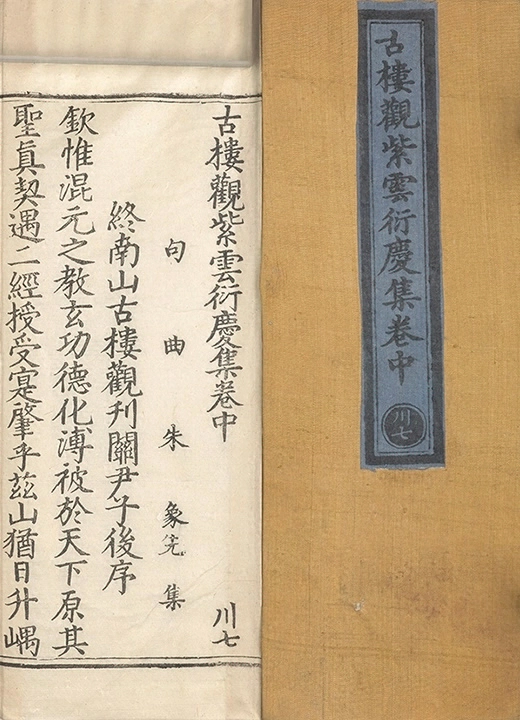 古樓觀紫雲衍慶集卷中
川七
古樓觀紫雲衍慶集卷中 川七
句曲朱象先集
終南山古樓觀刋關尹子後序
欽惟混元之教玄功德化溥被於天下原其
聖眞契遇二經授受寔肇乎茲山猶日升嵎